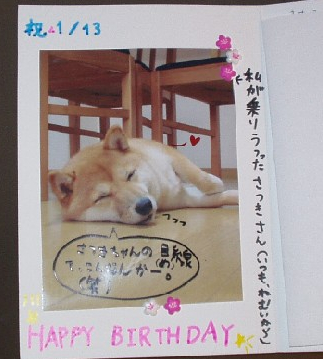 祝 1/13
私が乗りうつったさつきさん(いつも、ねむいから)
さつきちゃんの目線
って、こんなんかー。
(笑)
HAPPY BIRTHDAY